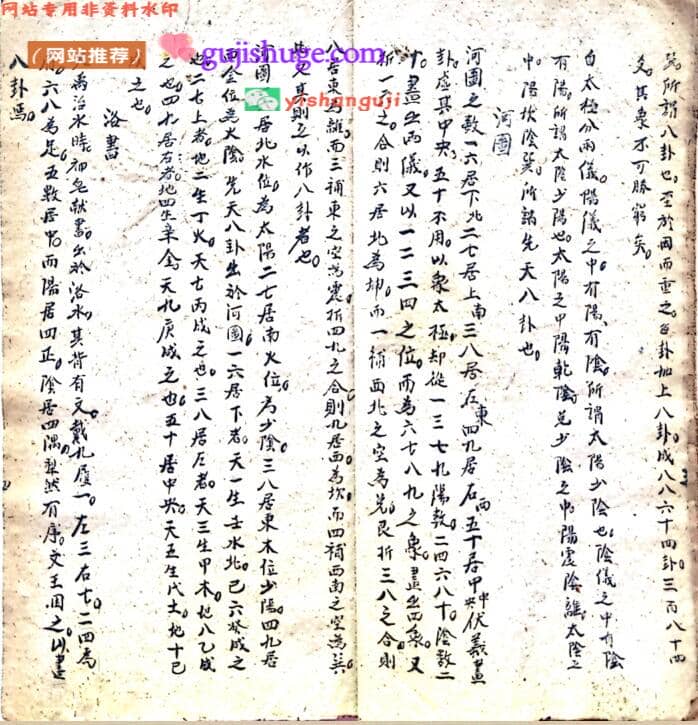 网站专用非资料水印
（网站推荐）
gujishuge.com
yishanguji
所謂八卦也至於因而重之每卦加上八卦成八八六十四卦三百八十四
爻其象不可勝窮矣
自太極分兩儀陽儀之中有陽有陰所謂太陽少陰也陰儀之中有陰
有陽所謂太陰少陽也太陽之中陽乾陰兌少陰之中陽離陰震太陰之
中陽坎陰巽所謂先天八卦也
河圖
河圖之數一六居下北二七居上南三八居左東四九居右西五十居中央伏羲畫
卦虛其中央五十不用以象太極却從一三七九陽數二四六八十陰數二
十畫出兩儀又以一二三四之位而為六七八九之象畫出四象又
折一六之合則六居北為坤而一補西北之空為艮折三八之合則
八居東為離而三補東之空為震折四九之合則九居西為坎而四補西南之空為巽
其則之以作八卦者也
圖居北水位為太陽二七居南火位為少陰三八居東木位少陽四九居
西金位為太陰先天八卦出於河圖一六居下者天一生壬水地六癸成之
也二七上者地二生丁火天七丙成之也三八居左者天三生甲木地八乙成
之也四九居右者地四生辛金天九庚成之也五十居中央天五生戊土地十己
之也
洛書
禹治水時神龜獻書出於洛水其背有文戴九履一左三右七二四為
六八為足五數居中而陽居四正陰居四隅犁然有序文王因之以畫
八卦焉